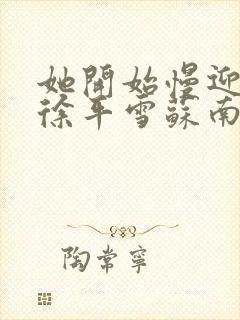 她開始慢迎
徐平雪蘇南
陶常寧